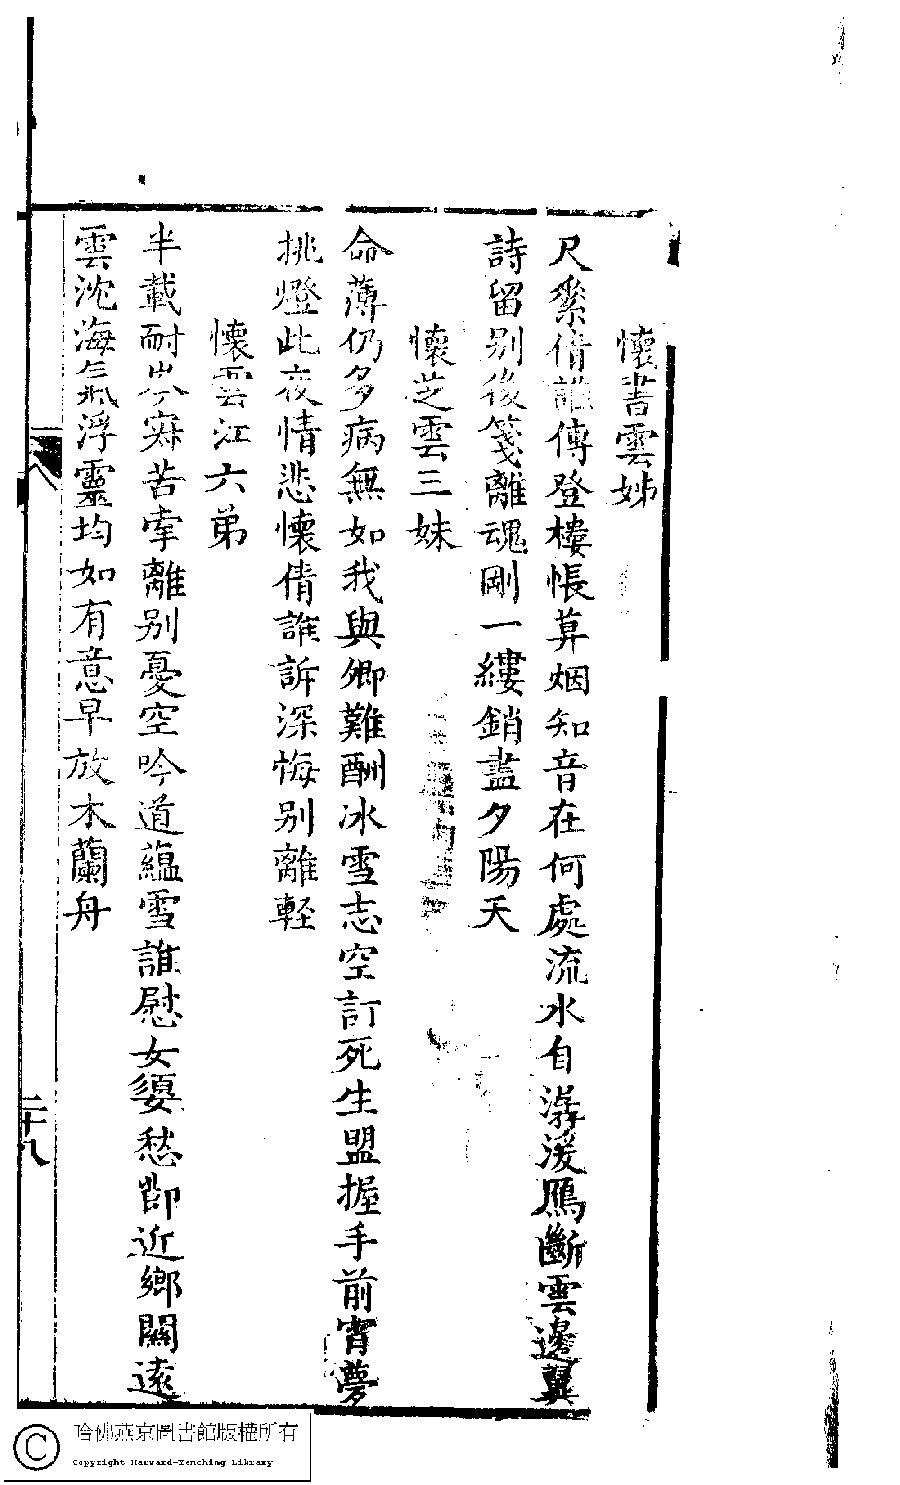 懷書雲姊
尺素倩誰傳登樓悵算烟知音在何處流水自潺湲鴈斷雲邊翼
詩留别後箋離魂剛一縷銷盡夕陽天
懷芝雲三妹
命薄仍多病無如我與卿難酬冰雪志空訂死生盟握手前宵夢
挑燈此夜情悲懷倩誰訴深悔别離輕
懷雲江六弟
半載耐岑寂苦牽離别憂空吟道蘊雪誰慰女嬃愁卽近鄉關遠
雲沈海氣浮靈均如有意早放木蘭舟
二十八
哈佛燕京圖書館版權所有
Copyright Harvard-Yenching Library